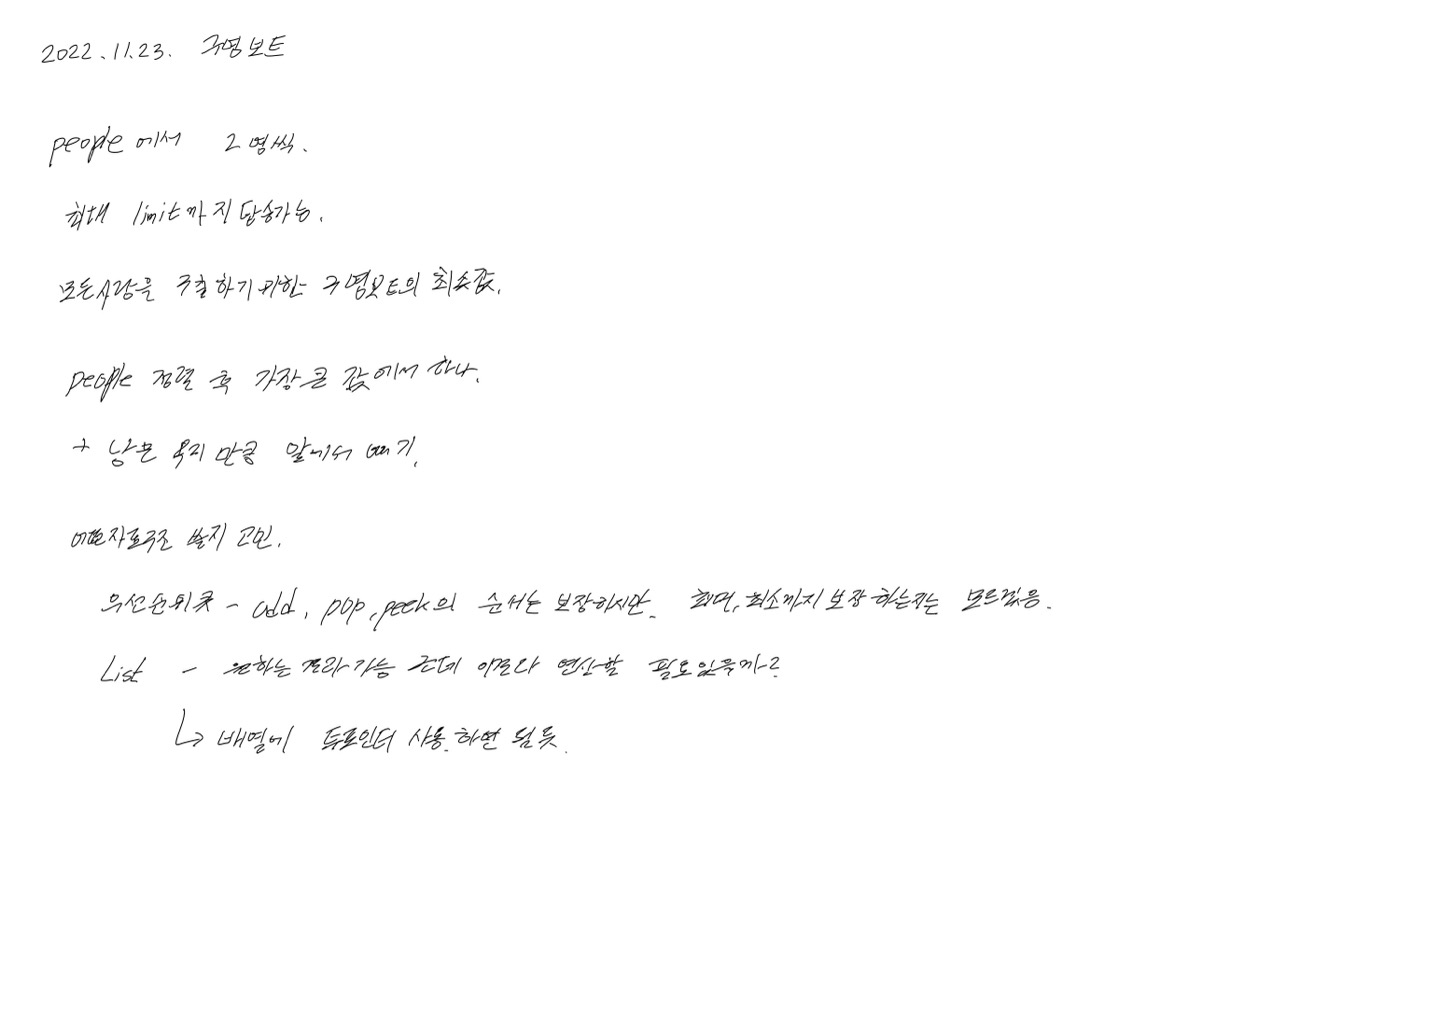 2022.11.23. 구명보트
people에서 2명씩.
최대 limit까지 탑승가능.
모든사람을 구출하기위한 구명보트의 최소값.
people 정렬 후 가장 큰 값에서 하나.
+ 남은 무게 만큼 앞에서 빼기.
어떤자료구조 쓸지 고민.
우선순위큐 - add, pop, peek의 순서는 보장하지만. 최대, 최소까지 보장하는지는 모르겠음.
List - 원하는 결과가능 근데 이걸다 연산할 필요있을까?
↳ 배열에 투포인터 사용.하면 될 듯.